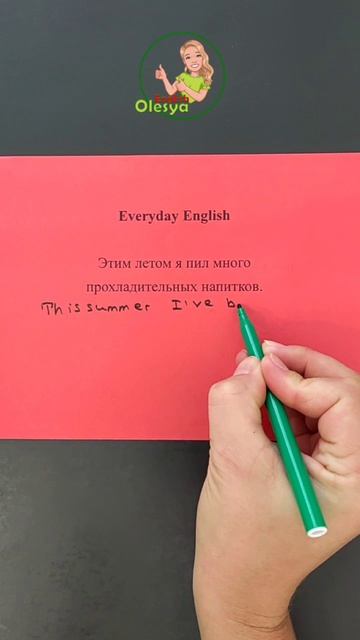 Olesya
Everyday English
Этим летом я пил много
прохладительных напитков.
This summer I've b